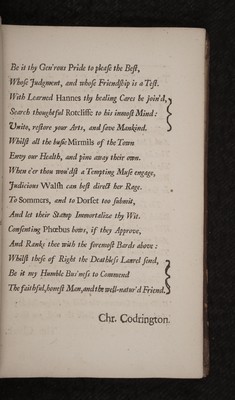 Be it thy Gen'rous Pride to please the Best,
Whose Judgment, and whose Friendship is a Test.
With Learned Hannes thy healing Cares be join'd,
Search thoughtful Rotcliffe to his inmost Mind:
Unite, restore your Arts, and save Mankind.
Whilst all the busie Mirmils of the Town
Envy our Health, and pine away their own.
When e'er thou wou'dst a Tempting Muse engage,
Judicious Walsh can best direct her Rage.
To Sommers, and to Dorset too submit,
And let their Stamp Immortalize thy Wit.
Consenting Phœbus bows, if they Approve,
And Ranks thee with the foremost Bards above:
Whilst these of Right the Deathless Laurel send,
Be it my Humble Bus'ness to Commend
The faithful, honest Man, and the well-natur'd Friend.
Chr. Codrington.